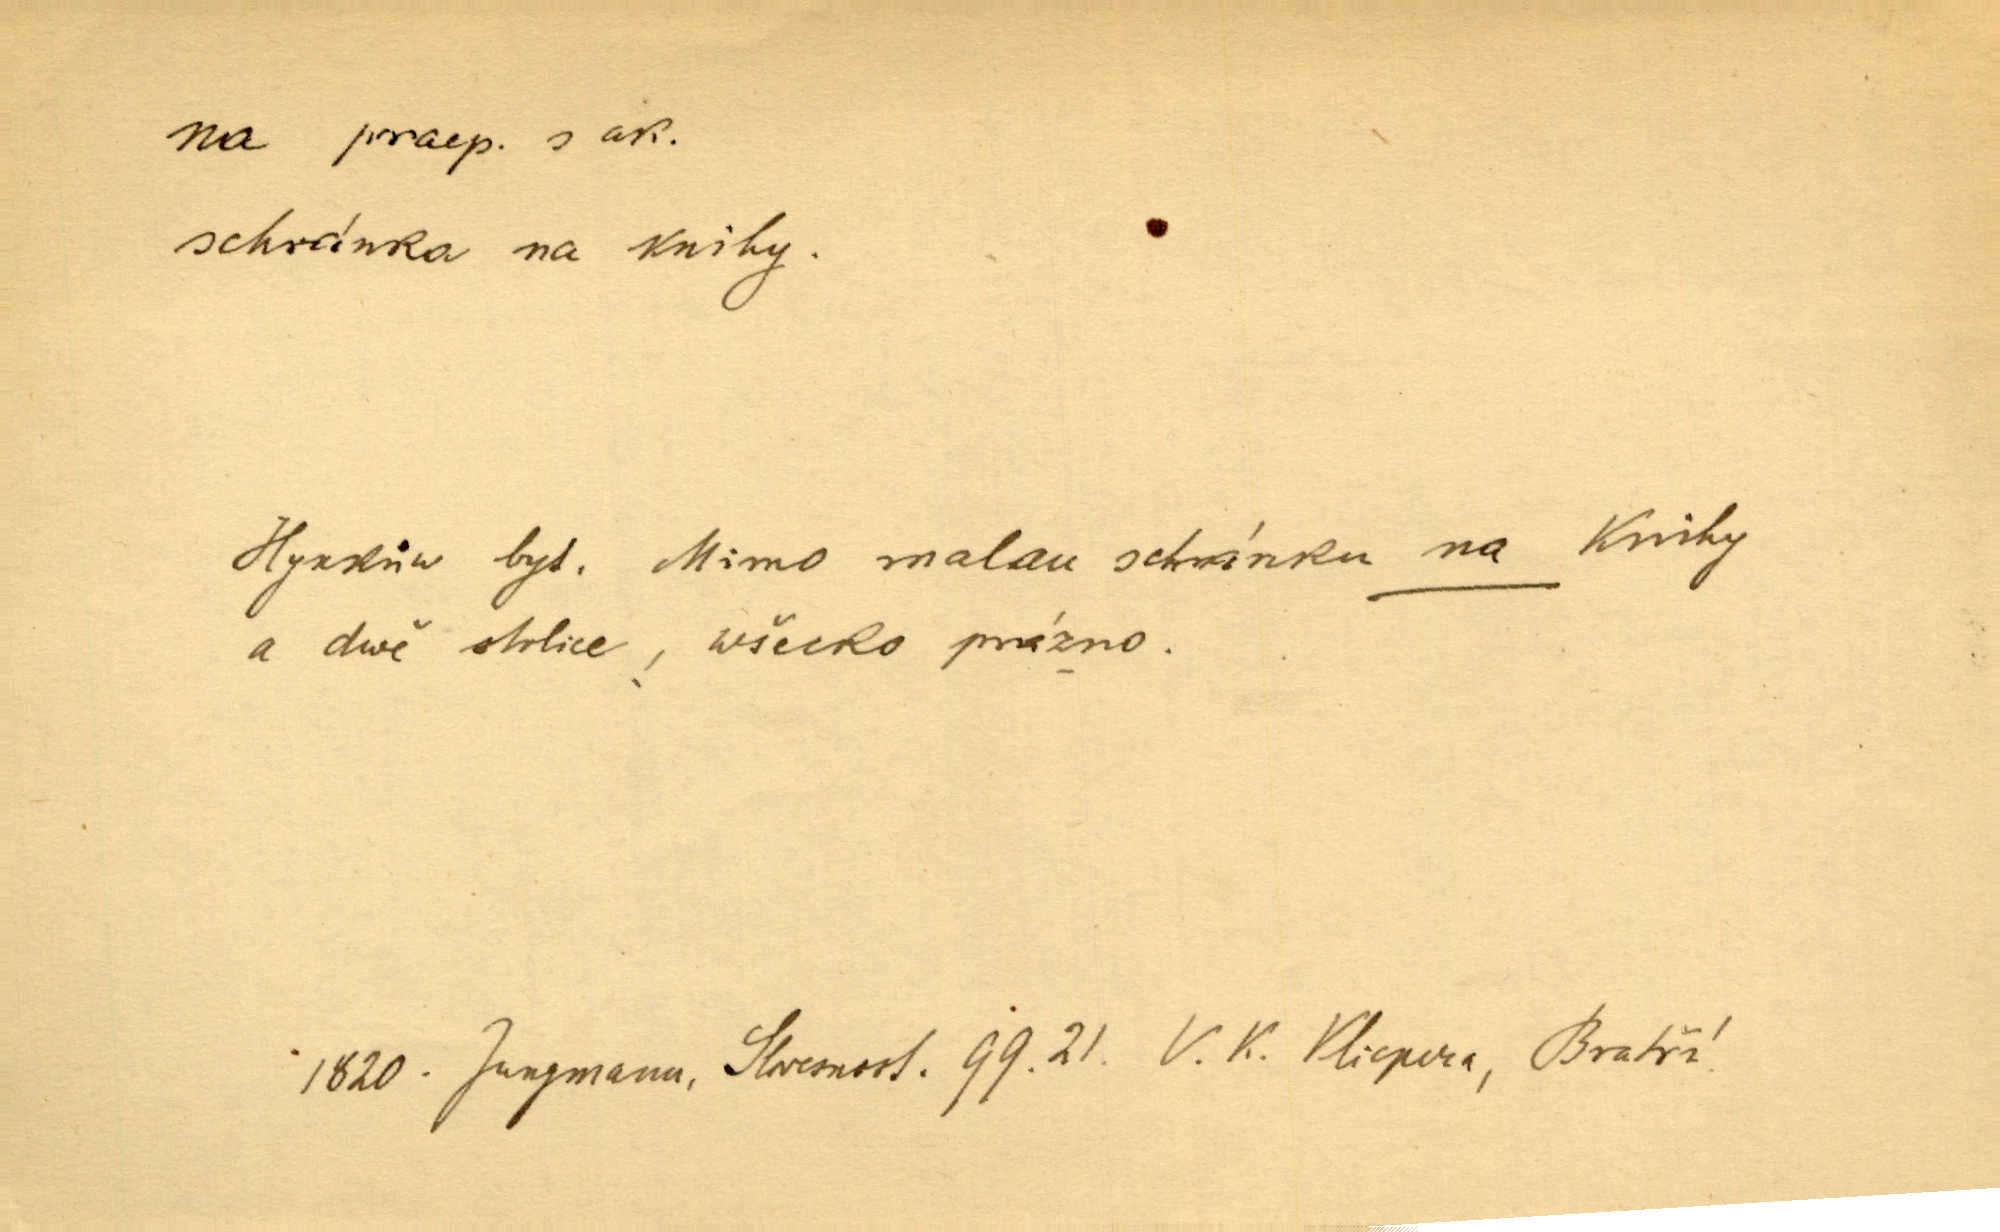 na praep. s ak.
schránka na knihy.
Hynkůw byt. Mimo malau schránku na knihy
a dwě stolice, wšecko prázno.
1820. Jungmann, Slowesnost. 99.21. V. K. Klicpera, Bratří.